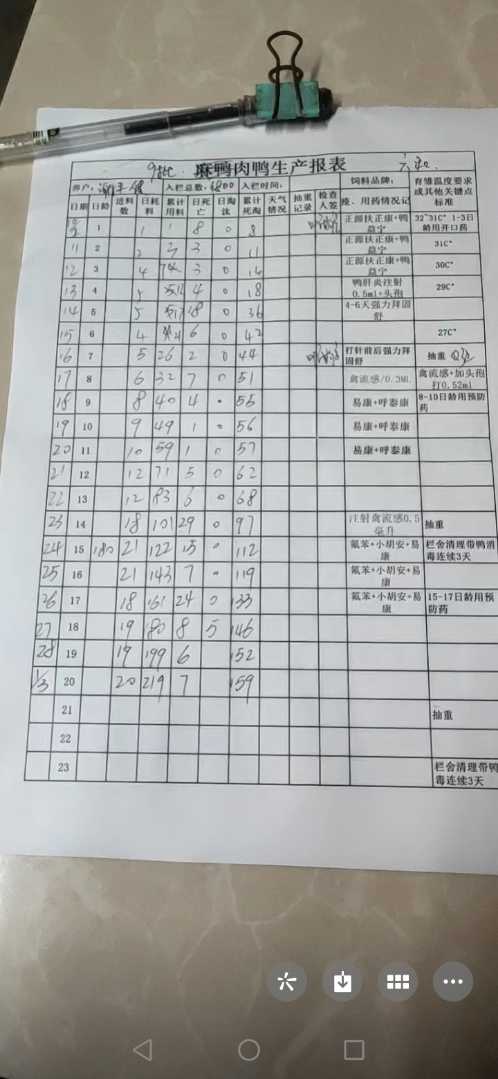 9批 麻鸭肉鸭生产报表
养户: 入栏总数: 6800 入栏时间: 饲料品牌: 育雏温度要求或其他关键点标准
日期 日龄 进料数 日耗料 累计用料 日死亡 日淘汰 累计死淘 天气情况 抽重记录 检查人签 疫、用药情况记
1 1 1 8 0 8 正源扶正康+鸭益宁 32~31C° 1-3日龄用开口药
11 2 2 3 3 0 11 正源扶正康+鸭益宁 31C°
12 3 4 3 0 14 正源扶正康+鸭益宁 30C°
13 4 5 4 0 18 鸭肝炎注射0.5ml+头孢 29C°
14 5 5 18 0 36 4-6天强力拜固舒
15 6 4 6 0 42 27C°
16 7 5 26 2 0 44 打针前后强力拜固舒 抽重
17 8 6 32 7 0 51 禽流感/0.3ML 禽流感+加头孢打0.52ml
18 9 8 40 4 0 55 易康+呼泰康 8-10日龄用预防药
19 10 9 49 1 0 56 易康+呼泰康
20 11 10 59 1 0 57 易康+呼泰康
21 12 12 71 5 0 62
22 13 12 83 6 0 68
23 14 18 101 29 0 97 注射禽流感0.5毫升 抽重
24 15 180 21 122 15 0 112 氟苯+小胡安+易康 栏舍清理带鸭消毒连续3天
25 16 21 143 7 0 119 氟苯+小胡安+易康
26 17 18 161 24 0 133 氟苯+小胡安+易康 15-17日龄用预防药
27 18 19 180 8 5 146
28 19 19 199 6 152
1/3 20 20 219 7 159
21 抽重
22
23 栏舍清理带鸭毒连续3天